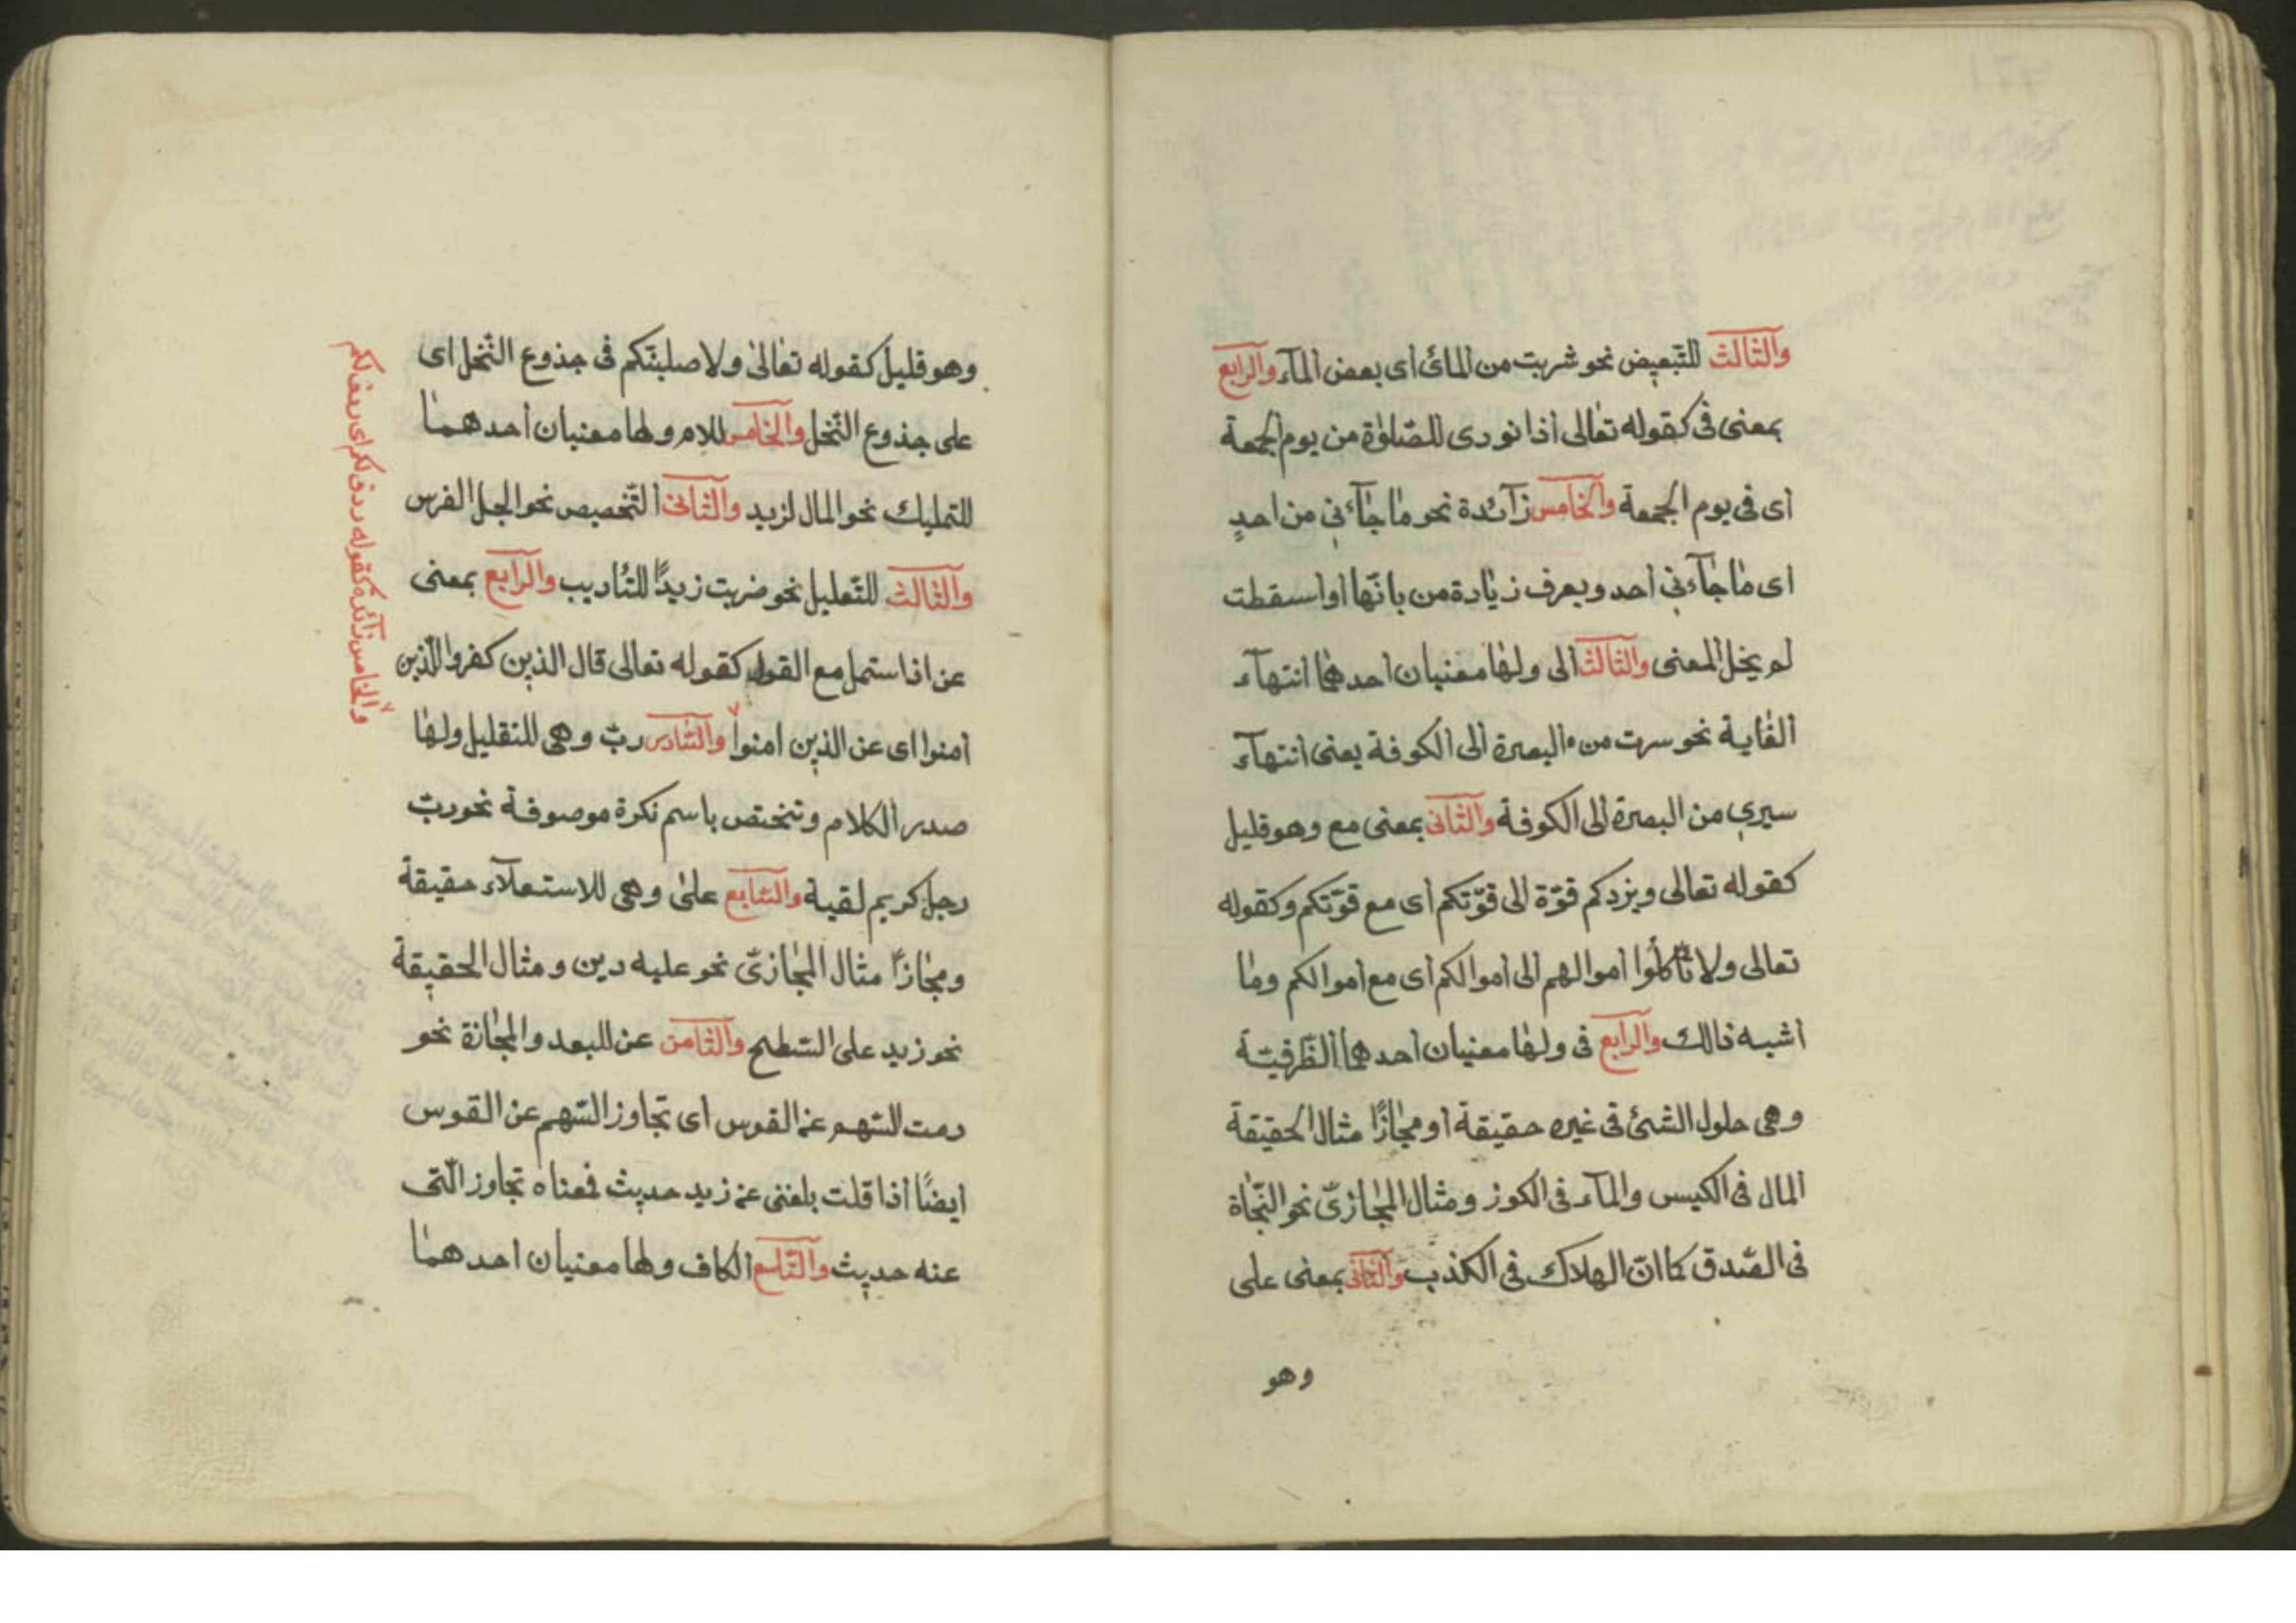 والثالث للتبعيض نحو شربت من المائ اى بعض المآء والرابع
بمعنى فى كقوله تعالى اذا نودى للصّلوٰة من يوم الجمعة
اى فى يوم الجمعة والخامس زآئدة نحو ما جآءنى من احدٍ
اى ما جآءنى احد ويعرف زيادة من بانّها اواسقطت
لم يخل المعنى والثالث الى ولها معنيان احدهما انتهآء
الغاية نحو سرت من البصرة الى الكوفة يعنى انتهآء
سيرى من البصرة الى الكوفة والثانى بمعنى مع وهو قليل
كقوله تعالى ويزدكم قوّة الى قوّتكم اى مع قوّتكم وكقوله
تعالى ولا تأكلُوا اموالهم الى اموالكم اى مع اموالكم وما
اشبه ذالك والرابع فى ولها معنيان احدهما الظّرفيّة
وهى حلول الشئ فى غيره حقيقة او مجازًا مثال الحقيقة
المال فى الكيس والمآء فى الكوز ومثال المجازىّ نحو النّجاة
فى الصّدق كما انّ الهلاك فى الكذب والثانى بمعنى على
وهو
وهو قليل كقوله تعالىٰ ولاصلبنّكم فى جذوع النّخل اى
على جذوع النّخل والخامس للام ولها معنيان احدهما
للتمليك نحو المال لزيد والثانى التّخصيص نحو الجل الفرس
والثالث للتّعليل نحو ضربت زيدًا للتّاديب والرابع بمعنى
عن اذا ستمل مع القول كقوله تعالى قال الذين كفروا للّذين
امنوا اى عن الذين امنوا والسّادس ربّ وهى للتقليل ولها
صدر الكلام وتختص باسم نكرة موصوفة نحو ربّ
رجل كريم لقية والسّابع علىٰ وهى للاستعلآء حقيقة
ومجازًا مثال المجازىّ نحو عليه دين ومثال الحقيقة
نحو زيد على السّطح والثامن عن للبعد والمجازة نحو
رمت السّهم عن القوس اى تجاوز السّهم عن القوس
ايضًا اذا قلت بلغنى عن زيد حديث فمعناه تجاوز الّتى
عنه حديث والتّاسع الكاف ولها معنيان احدهما
والخامس زآئدة كقوله ردف لكم اى ردف لكم